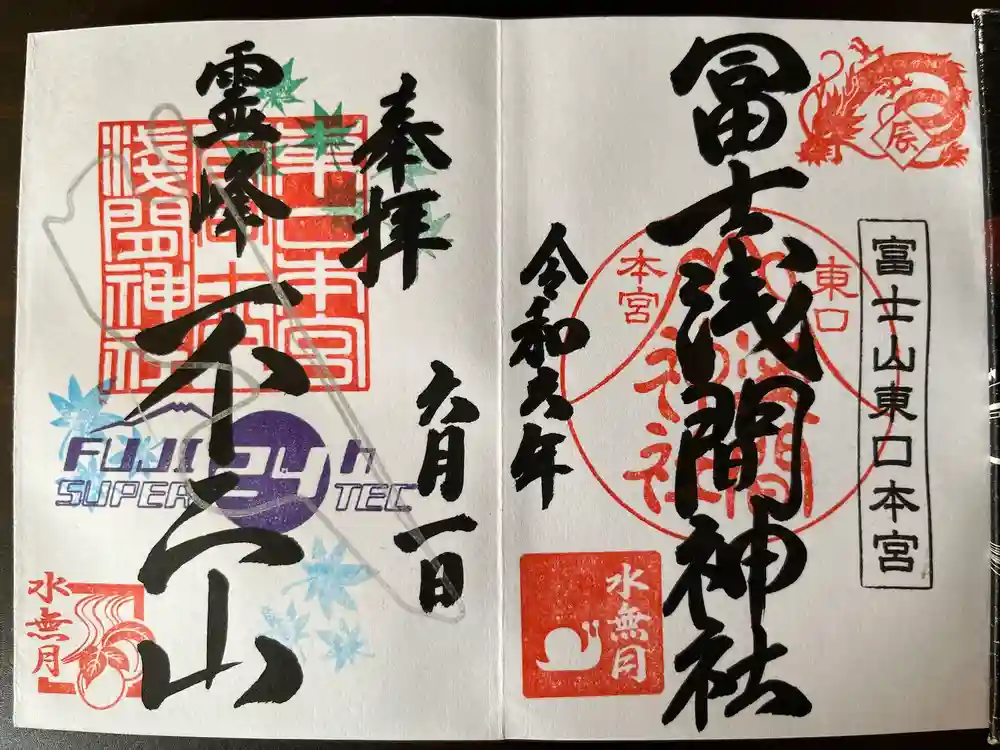 辰
富士山東口本宮
冨士浅間神社
東口
本宮
浅間
神社
水無月
令和六年
奉拝
六月一日
東口本宮
冨士
浅間神社
霊峰
不二山
FUJI 24h
SUPER TEC
水無月